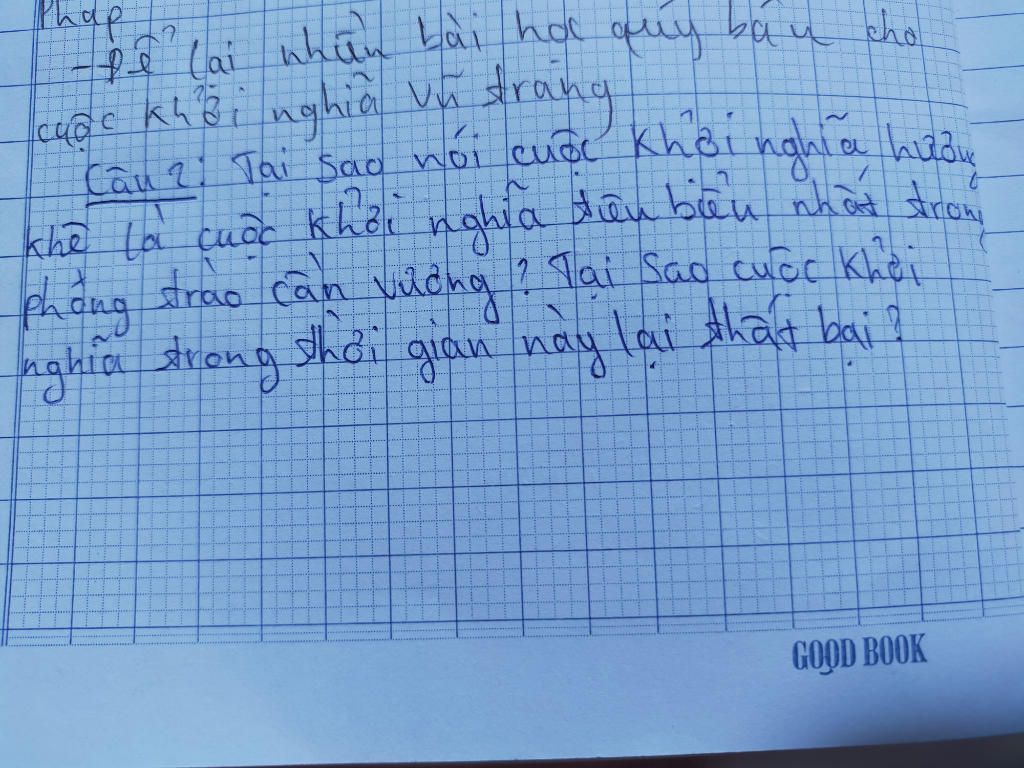 Pháp
- Để lại nhần bài học quý báu cho
cuộc khởi nghĩa vũ trang
Câu 2: Tại sao nói cuộc khởi nghĩa hương
khê là cuộc khởi nghĩa tiêu biểu nhất trong
phong trào cần vương? Tại sao cuộc khởi
nghĩa trong thời gian này lại thất bại?
GOOD BOOK